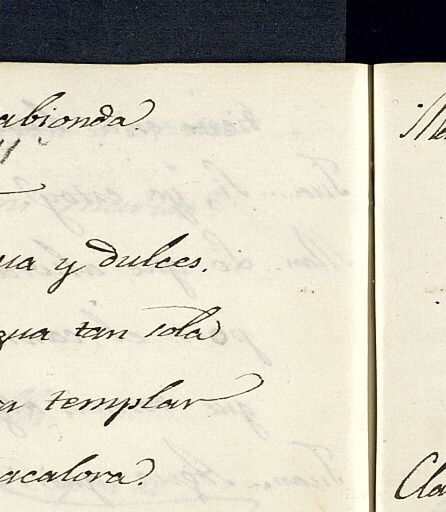 abionda.
ua y dulces.
gua tan sola
a templar
acalora.
Cla